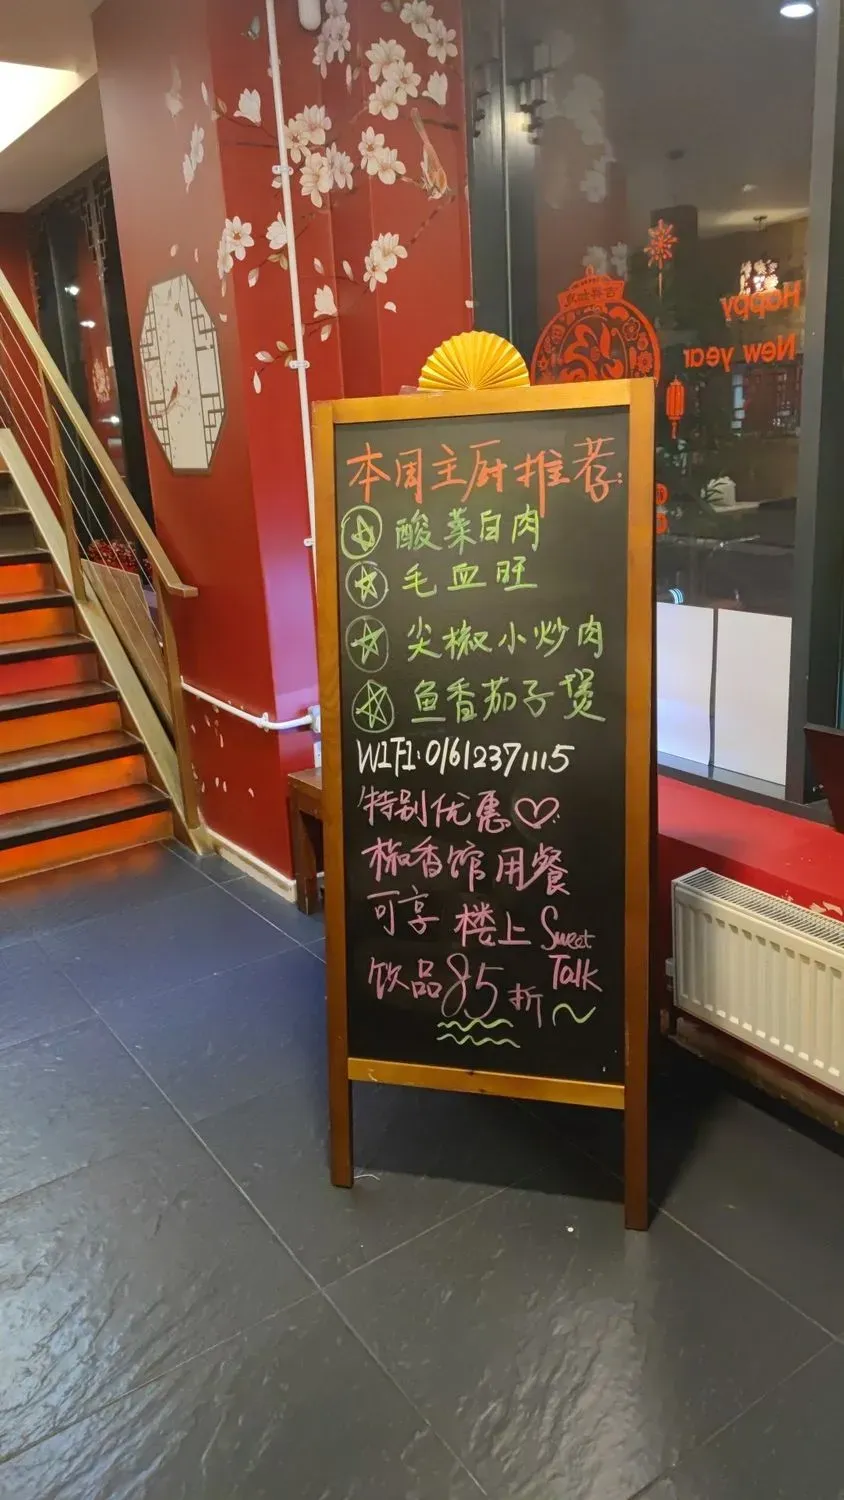 本周主厨推荐:
酸菜白肉
毛血旺
尖椒小炒肉
鱼香茄子煲
WIFI:01612371115
特别优惠♡:
椒香馆用餐
可享楼上Sweet
Talk
饮品85折~
Happy
New year